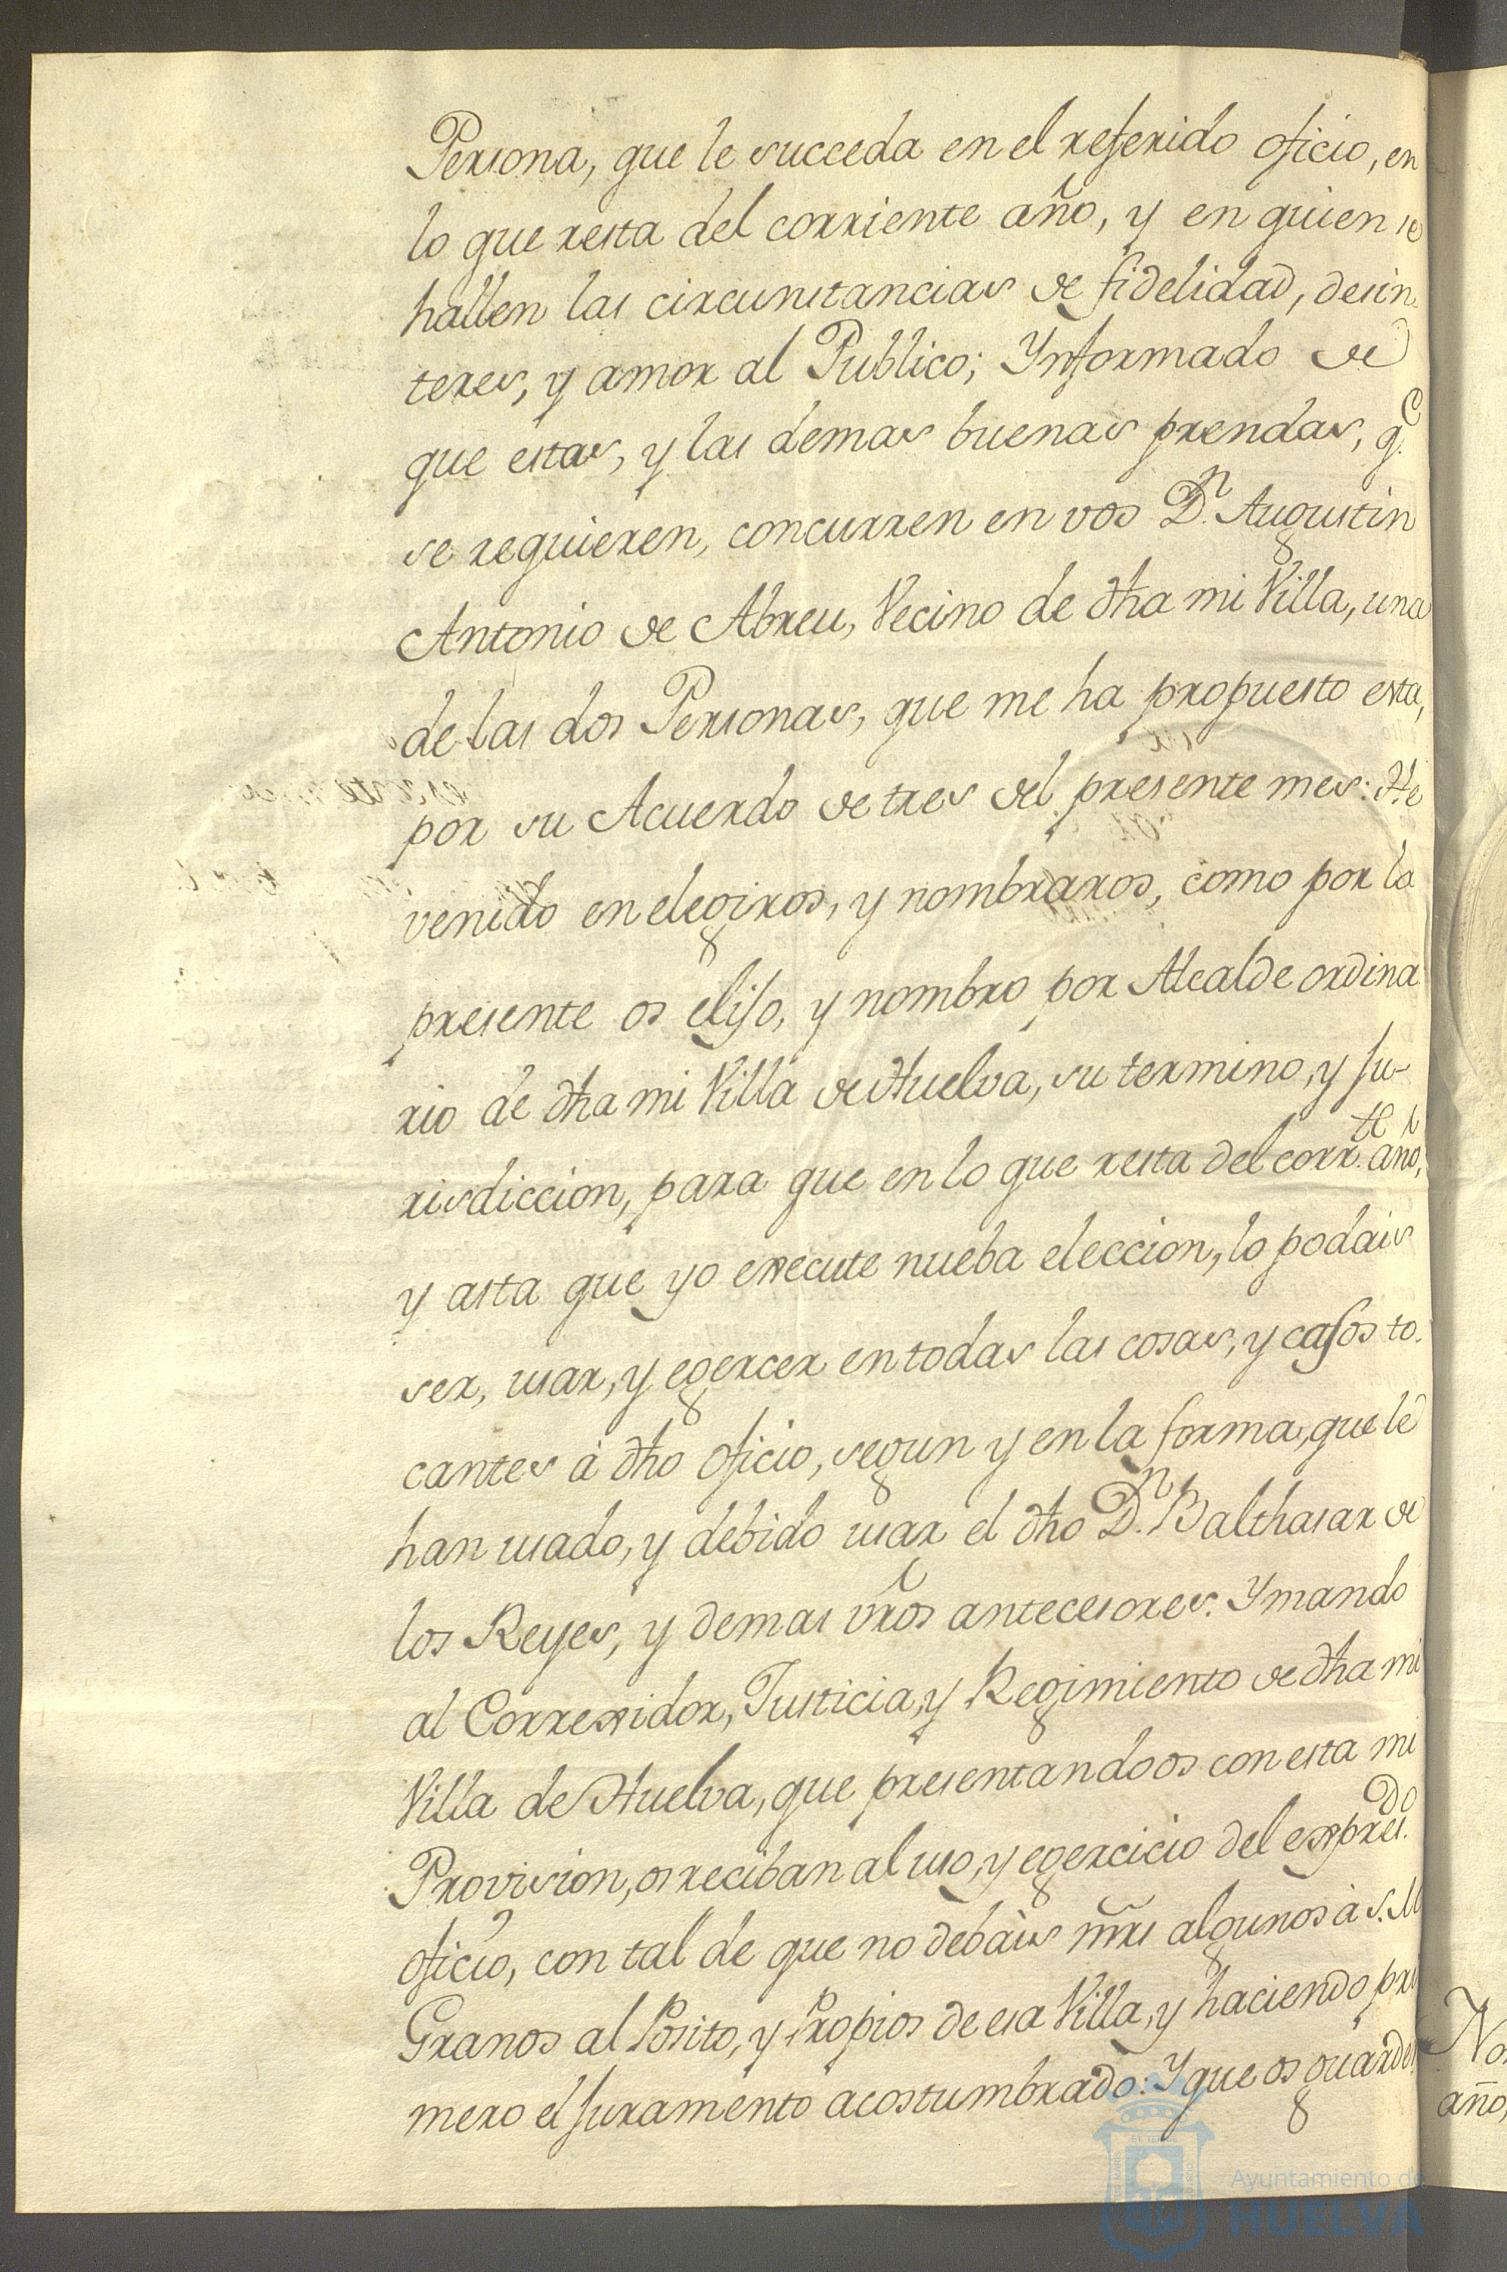 Persona, que le succeda en el referido oficio, en
lo que resta del corriente año, y en quien se
hallen las circunstancias de fidelidad, desin-
teres, y amor al Publico; Ynformado de
que estas, y las demas buenas prendas, q.e
se requieren, concurren en vos D.n Augustin
Antonio de Abreu, Vecino de dha mi Villa, una
de las dos Personas, que me ha propuesto esta,
por su Acuerdo de tres del presente mes: He
venido en elegiros, y nombraros, como por la
presente os elijo, y nombro por Alcalde ordina
rio de dha mi Villa de Huelva, su termino, y ju-
risdiccion, para que en lo que resta del corr.te año,
y asta que yo execute nueba eleccion, lo podais
ser, usar, y egercer en todas las cosas, y casos to-
cantes à dho oficio, segun y en la forma, que le
han usado, y debido usar el dho D.n Balthasar de
los Reyes, y demas vrõs antecesores. Y mando
al Correxidor, Justicia, y Regimiento de dha mi
Villa de Huelva, que presentandoos con esta mi
Provision, os reciban al uso, y egercicio del expres.do
oficio, con tal de que no debàis mrs algunos à S.M
Granos al Posito, y Propios de esa Villa, y haciendo pri
mero el juramento acostumbrado: Y que os guarden
No
año,
Ayuntamiento de
HUELVA